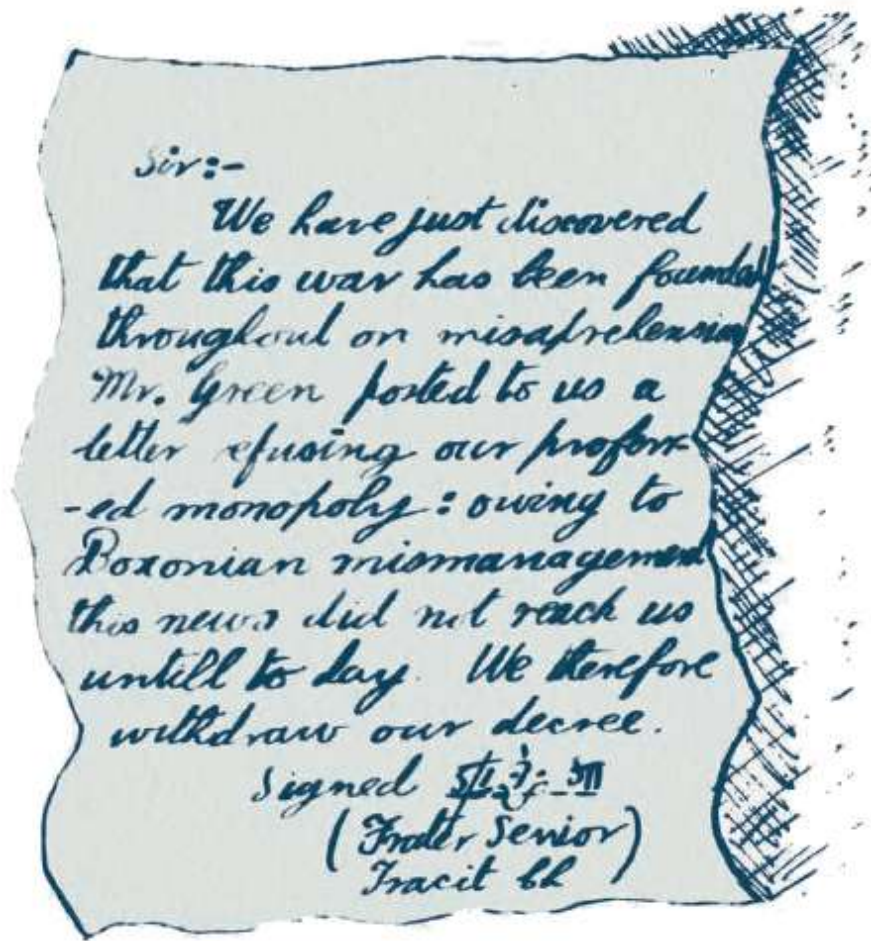 Sir:-
We have just discovered
that this war has been founded
throughout on misaprehension
Mr. Green posted to us a
letter refusing our proffer-
-ed monopoly: owing to
Boxonian mismanagement
this news did not reach us
untill to day. We therefore
withdraw our decree.
Signed
(Frater Senior)
Tracit